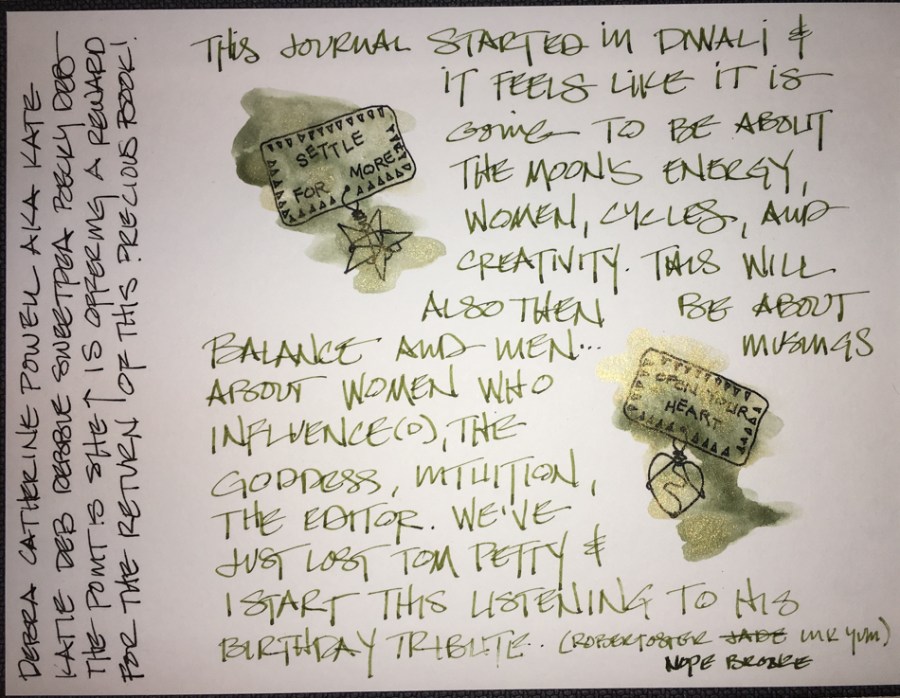 THIS JOURNAL STARTED IN DIWALI &
IT FEELS LIKE IT IS
GOING TO BE ABOUT
THE MOON'S ENERGY,
WOMEN, CYCLES, AND
CREATIVITY. THIS WILL
ALSO THEN BE ABOUT
BALANCE AND MEN... MUSINGS
ABOUT WOMEN WHO
INFLUENCE(D), THE
GODDESS, INTUITION,
THE EDITOR. WE'VE
JUST LOST TOM PETTY &
I START THIS LISTENING TO HIS
BIRTHDAY TRIBUTE.. (ROBERTOSTER JADE INK YUM)
NOPE BRONZE
SETTLE
FOR MORE
OPEN YOUR
HEART
DEBRA CATHERINE POWELL AKA KATE
KATIE DEB DEBBIE SWEETPEA POCKY DEB
THE POINT IS SHE ↑ IS OFFERING A REWARD
FOR THE RETURN OF THIS PRECIOUS BOOK!